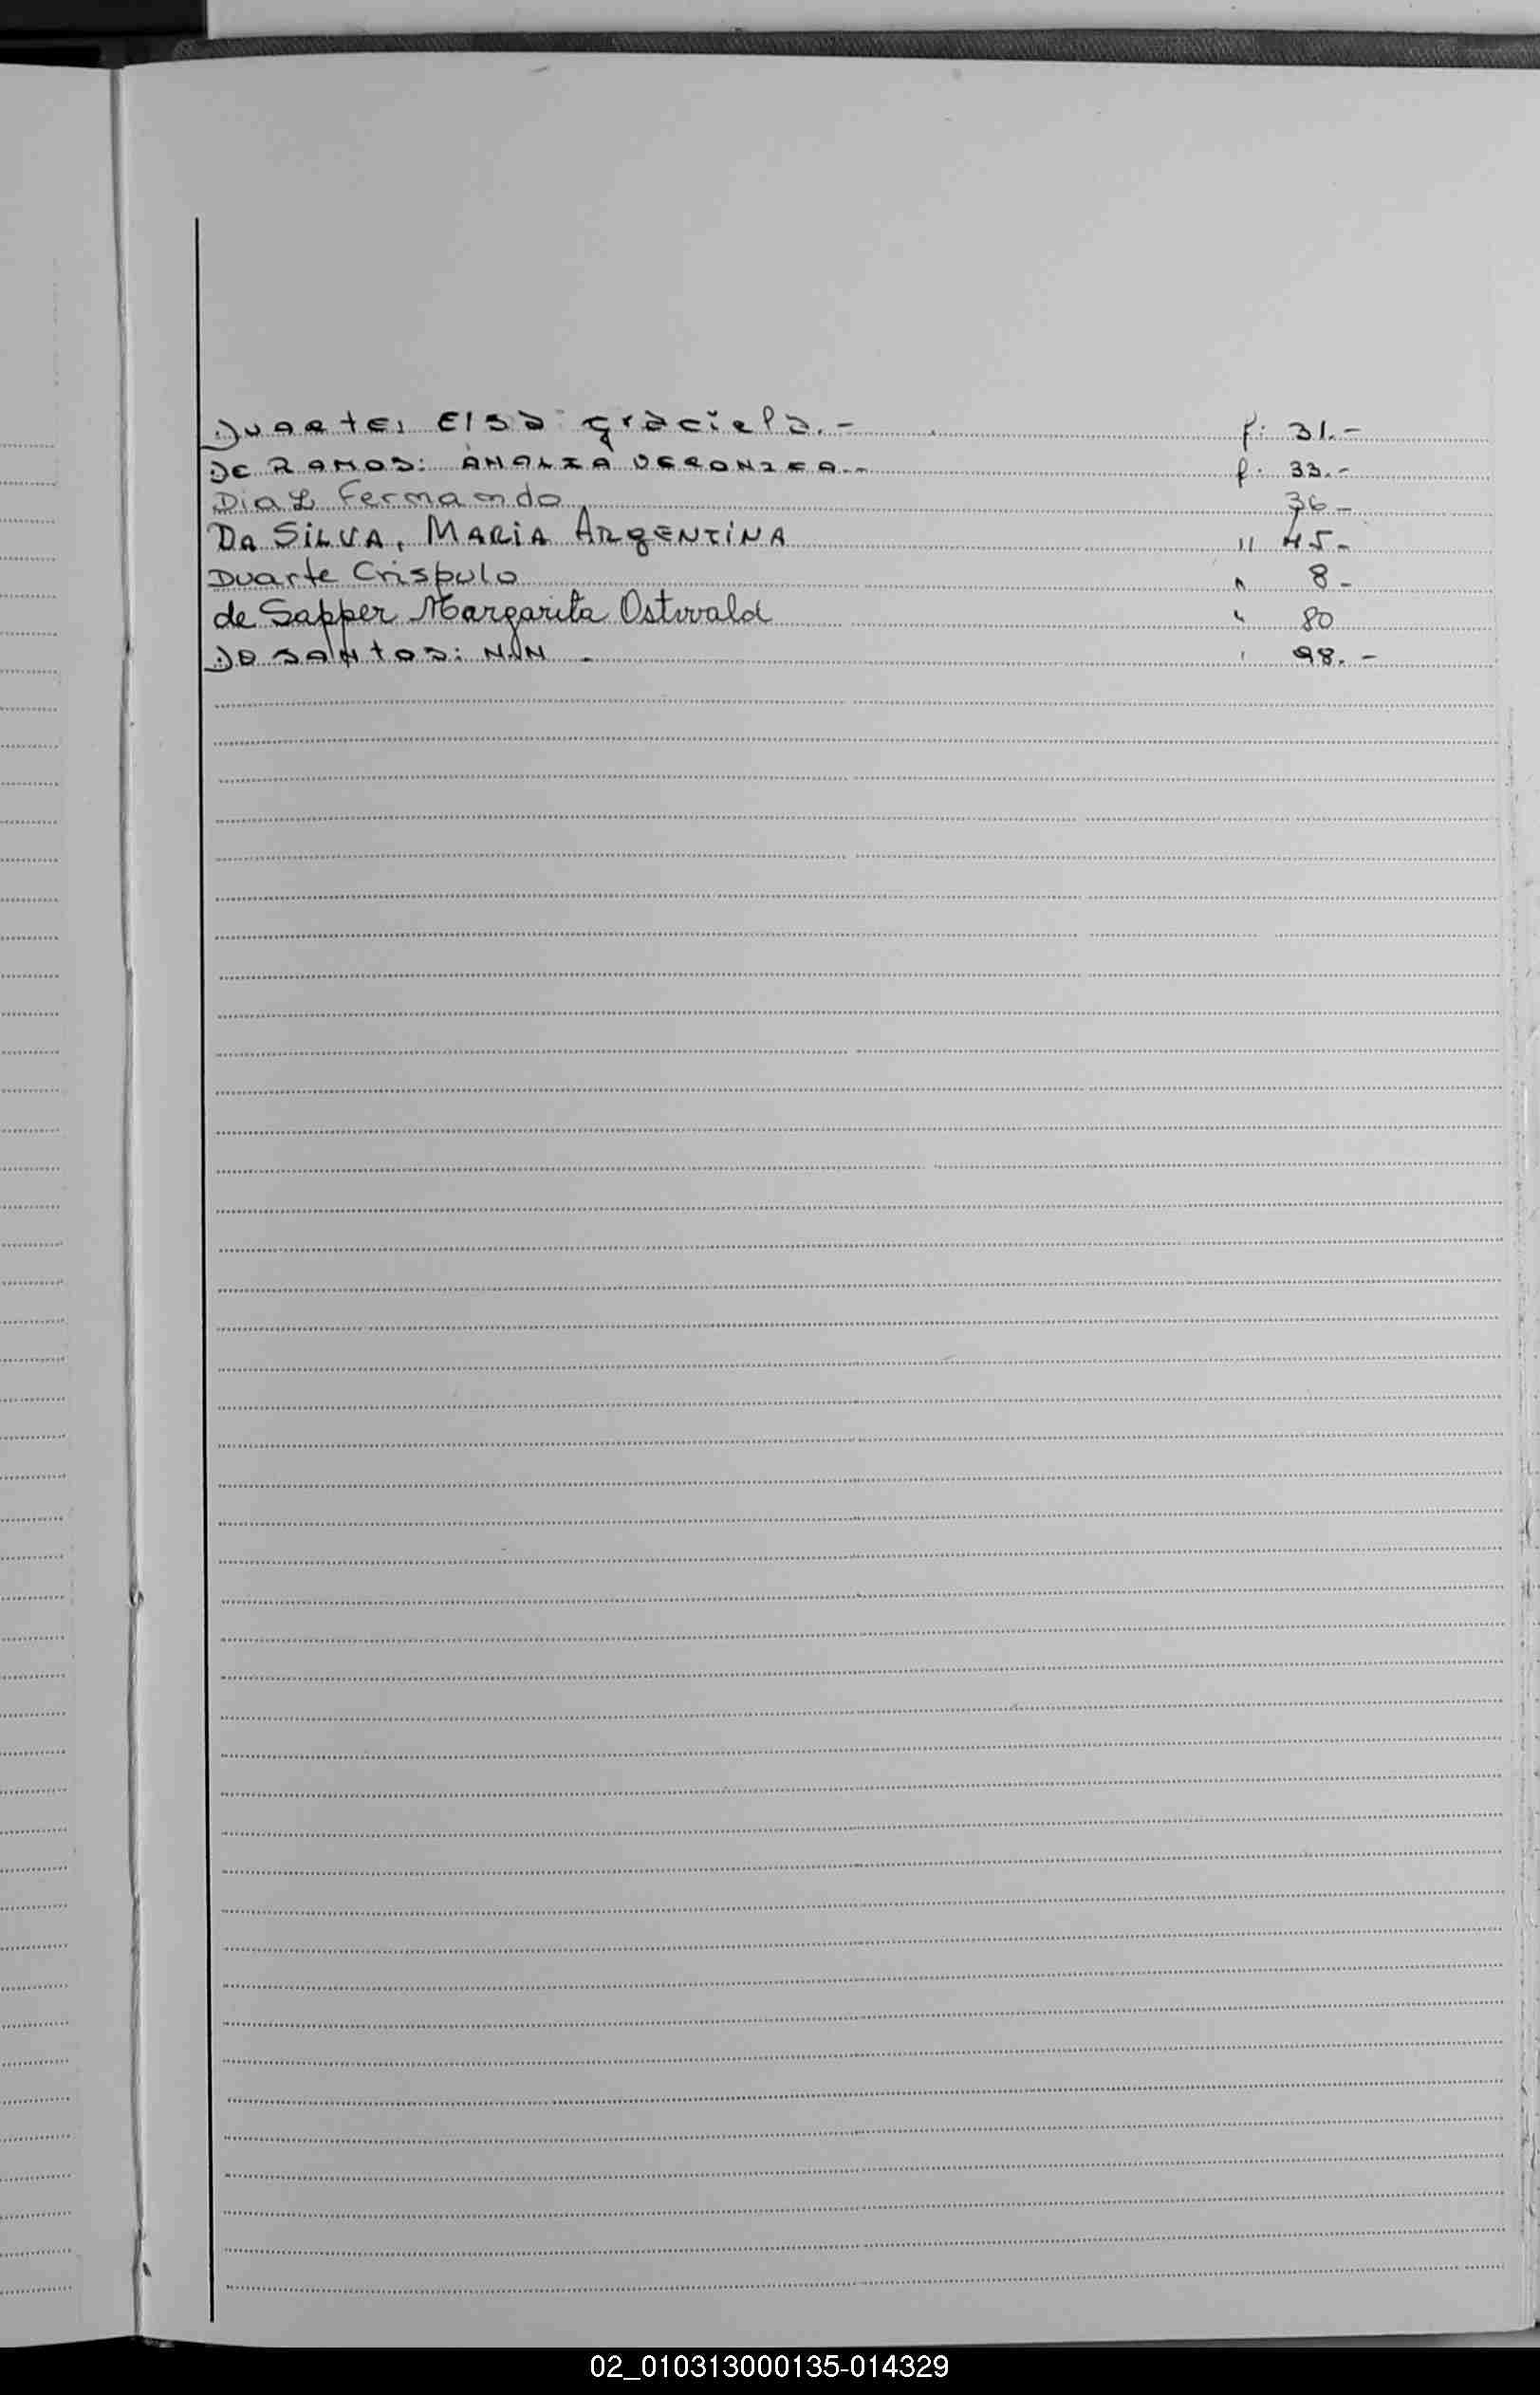 Duarte, Elsa graciela.- f: 31.-
DE RAMOS: ANALIA VERONICA.- f: 33.-
Diaz Fernando 36-
Da SiLVA, MARiA ARgENTiNA " 45-
Duarte Crispulo " 8-
de Sapper Margarita Ostwald " 80
DO SANtOS: N.N - " 98.-
02_010313000135-014329